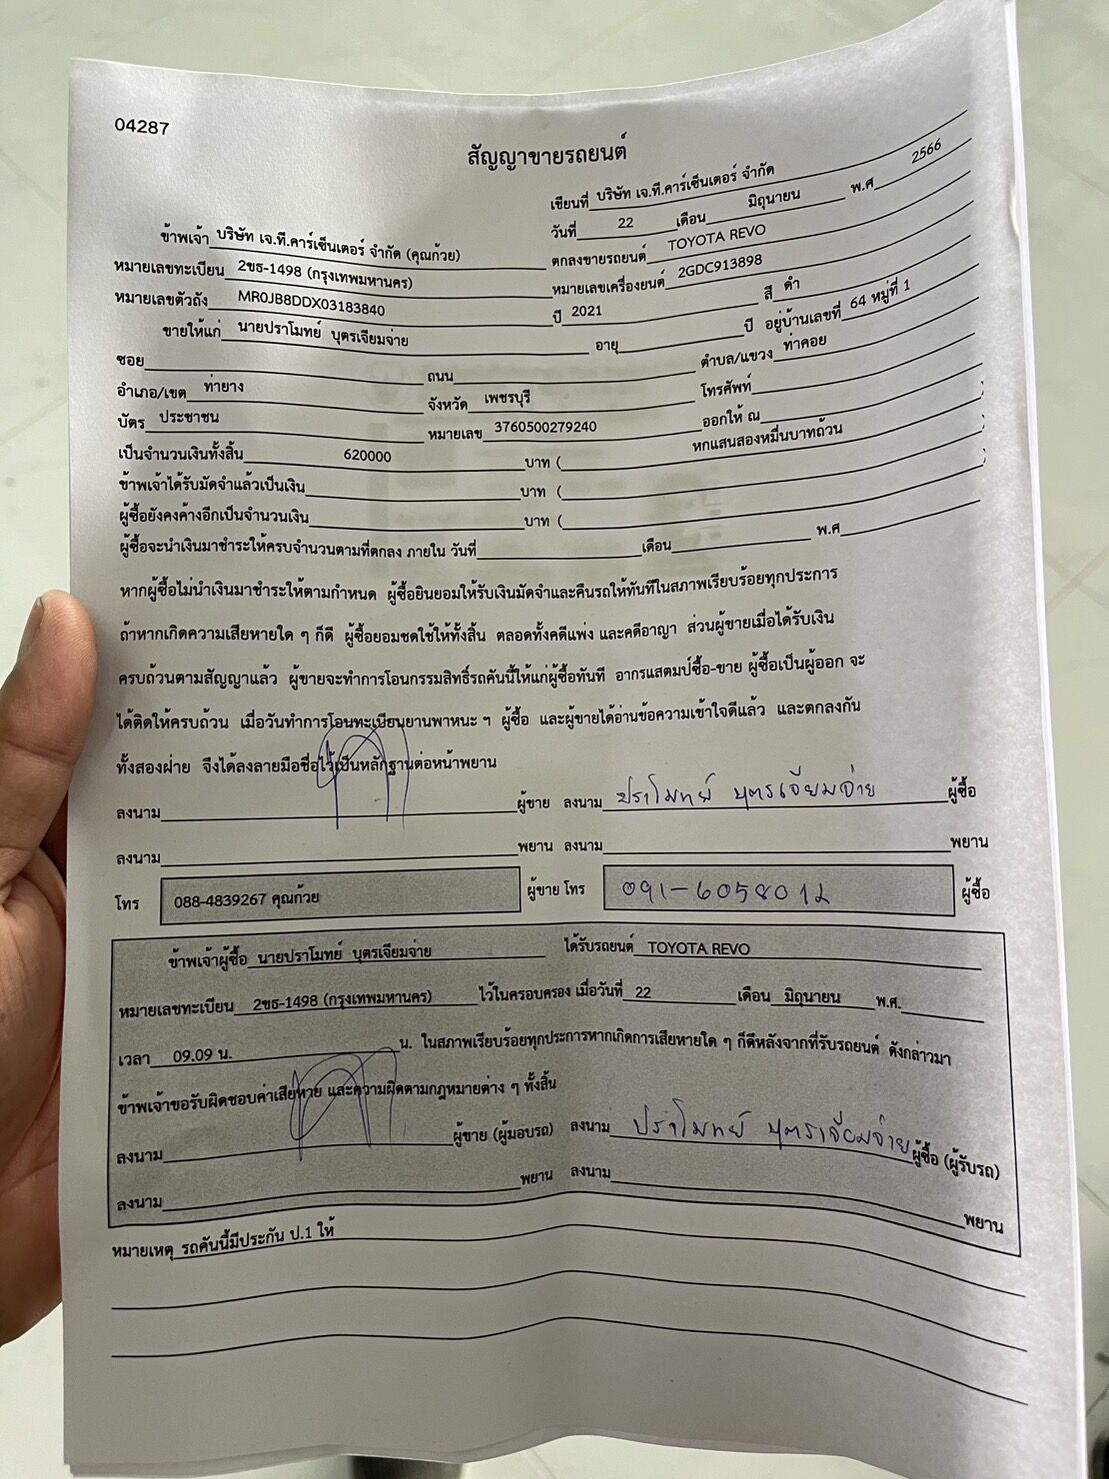 04287
สัญญาขายรถยนต์
เขียนที่ บริษัท เจ.ที.คาร์เซ็นเตอร์ จำกัด
วันที่ 22 เดือน มิถุนายน พ.ศ 2566
ข้าพเจ้า บริษัท เจ.ที.คาร์เซ็นเตอร์ จำกัด (คุณก้วย) ตกลงขายรถยนต์ TOYOTA REVO
หมายเลขทะเบียน 2ขธ-1498 (กรุงเทพมหานคร) หมายเลขเครื่องยนต์ 2GDC913898
หมายเลขตัวถัง MR0JB8DDX03183840 ปี 2021 สี ดำ
ขายให้แก่ นายปราโมทย์ บุตรเจียมจ่าย อายุ ปี อยู่บ้านเลขที่ 64 หมู่ที่ 1
ซอย ถนน ตำบล/แขวง ท่าคอย
อำเภอ/เขต ท่ายาง จังหวัด เพชรบุรี โทรศัพท์
บัตร ประชาชน หมายเลข 3760500279240 ออกให้ ณ
เป็นจำนวนเงินทั้งสิ้น 620000 บาท ( หกแสนสองหมื่นบาทถ้วน )
ข้าพเจ้าได้รับมัดจำแล้วเป็นเงิน บาท ( )
ผู้ซื้อยังคงค้างอีกเป็นจำนวนเงิน บาท ( )
ผู้ซื้อจะนำเงินมาชำระให้ครบจำนวนตามที่ตกลง ภายใน วันที่ เดือน พ.ศ
หากผู้ซื้อไม่นำเงินมาชำระให้ตามกำหนด ผู้ซื้อยินยอมให้รับเงินมัดจำและคืนรถให้ทันทีในสภาพเรียบร้อยทุกประการ
ถ้าหากเกิดความเสียหายใด ๆ ก็ดี ผู้ซื้อยอมชดใช้ให้ทั้งสิ้น ตลอดทั้งคดีแพ่ง และคดีอาญา ส่วนผู้ขายเมื่อได้รับเงิน
ครบถ้วนตามสัญญาแล้ว ผู้ขายจะทำการโอนกรรมสิทธิ์รถคันนี้ให้แก่ผู้ซื้อทันที อากรแสตมป์ซื้อ-ขาย ผู้ซื้อเป็นผู้ออก จะ
ได้ติดให้ครบถ้วน เมื่อวันทำการโอนทะเบียนยานพาหนะ ฯ ผู้ซื้อ และผู้ขายได้อ่านข้อความเข้าใจดีแล้ว และตกลงกัน
ทั้งสองฝ่าย จึงได้ลงลายมือชื่อไว้เป็นหลักฐานต่อหน้าพยาน
ลงนาม ผู้ขาย ลงนาม ปราโมทย์ บุตรเจียมจ่าย ผู้ซื้อ
ลงนาม พยาน ลงนาม พยาน
โทร 088-4839267 คุณก้วย ผู้ขาย โทร 091-6058012 ผู้ซื้อ
ข้าพเจ้าผู้ซื้อ นายปราโมทย์ บุตรเจียมจ่าย ได้รับรถยนต์ TOYOTA REVO
หมายเลขทะเบียน 2ขธ-1498 (กรุงเทพมหานคร) ไว้ในครอบครอง เมื่อวันที่ 22 เดือน มิถุนายน พ.ศ.
เวลา 09.09 น. น. ในสภาพเรียบร้อยทุกประการหากเกิดการเสียหายใด ๆ ก็ดีหลังจากที่รับรถยนต์ ดังกล่าวมา
ข้าพเจ้าขอรับผิดชอบค่าเสียหาย และความผิดตามกฎหมายต่าง ๆ ทั้งสิ้น
ลงนาม ผู้ขาย (ผู้มอบรถ) ลงนาม ปราโมทย์ บุตรเจียมจ่าย ผู้ซื้อ (ผู้รับรถ)
ลงนาม พยาน ลงนาม พยาน
หมายเหตุ รถคันนี้มีประกัน ป.1 ให้